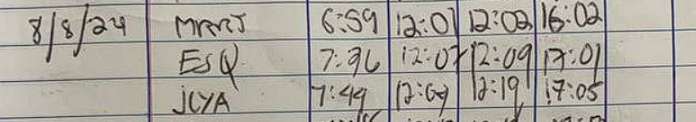 8/8/24 MRRJ 6:59 12:01 12:02 16:02
ESQ 7:36 12:07 12:09 17:01
JCYA 7:49 12:09 12:19 17:05